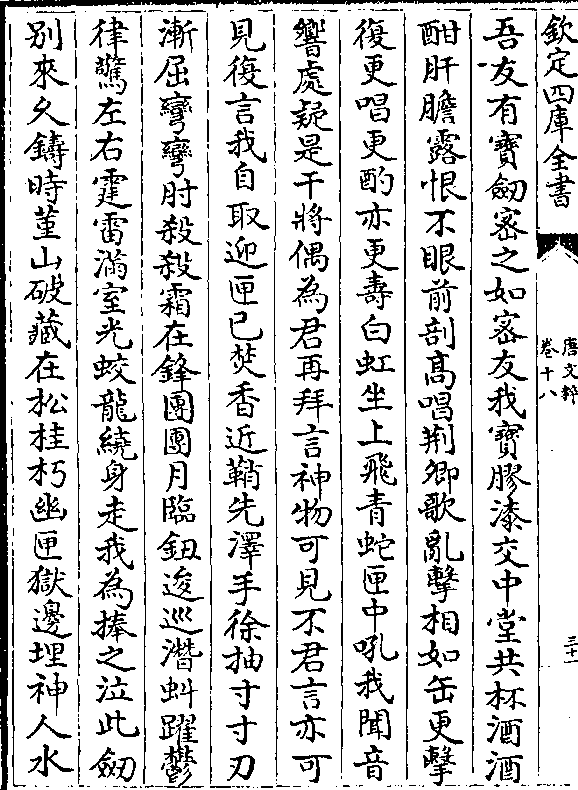 欽定四庫全書
唐文粹
卷十八
三十一
吾友有寶劒密之如密友我寶膠漆交中堂共杯酒酒
酣肝膽露恨不眼前剖髙唱荆卿歌亂擊相如缶更擊
復更唱更酌亦更壽白虹坐上飛青蛇匣中吼我聞音
響處疑是干將偶為君再拜言神物可見不君言亦可
見復言我自取迎匣已焚香近鞘先澤手徐抽寸寸刃
漸屈彎彎肘殺殺霜在鋒團團月臨鈕逡巡潛虯躍鬱
律驚左右霆雷滿室光蛟龍繞身走我為捧之泣此劒
别來久鑄時堇山破藏在松桂朽幽匣獄邊埋神人水